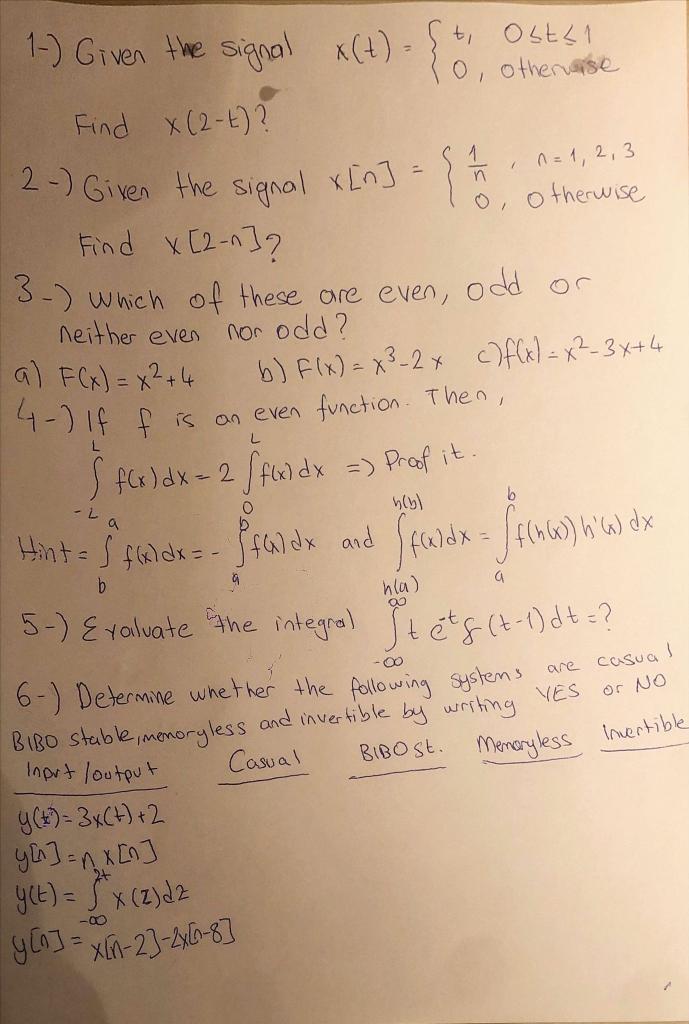 1-) Given the signal x(t) = { t, 0≤t≤1
0, otherwise
Find x(2-t)?
2-) Given the signal x[n] = { 1/n, n=1,2,3
0, otherwise
Find x[2-n]?
3-) which of these are even, odd or
neither even nor odd?
a) F(x) = x²+4 b) F(x) = x³-2x c) f(x) = x²-3x+4
4-) If f is an even function. Then,
∫_{-L}^{L} f(x)dx = 2 ∫_{0}^{L} f(x)dx => Proof it.
Hint = ∫_{b}^{a} f(x)dx = - ∫_{a}^{b} f(x)dx and ∫_{h(a)}^{h(b)} f(x)dx = ∫_{a}^{b} f(h(x)) h'(x) dx
5-) Evaluate the integral ∫_{-∞}^{∞} t e^{-t} δ(t-1) dt = ?
6-) Determine whether the following systems are casual
BIBO stable, memoryless and invertible by writing YES or NO
Input/output Casual BIBO St. Memoryless Invertible
y(t) = 3x(t)+2
y[n] = n x[n]
y(t) = ∫_{-∞}^{2t} x(z)dz
y[n] = x[n-2]-2x[n-8]